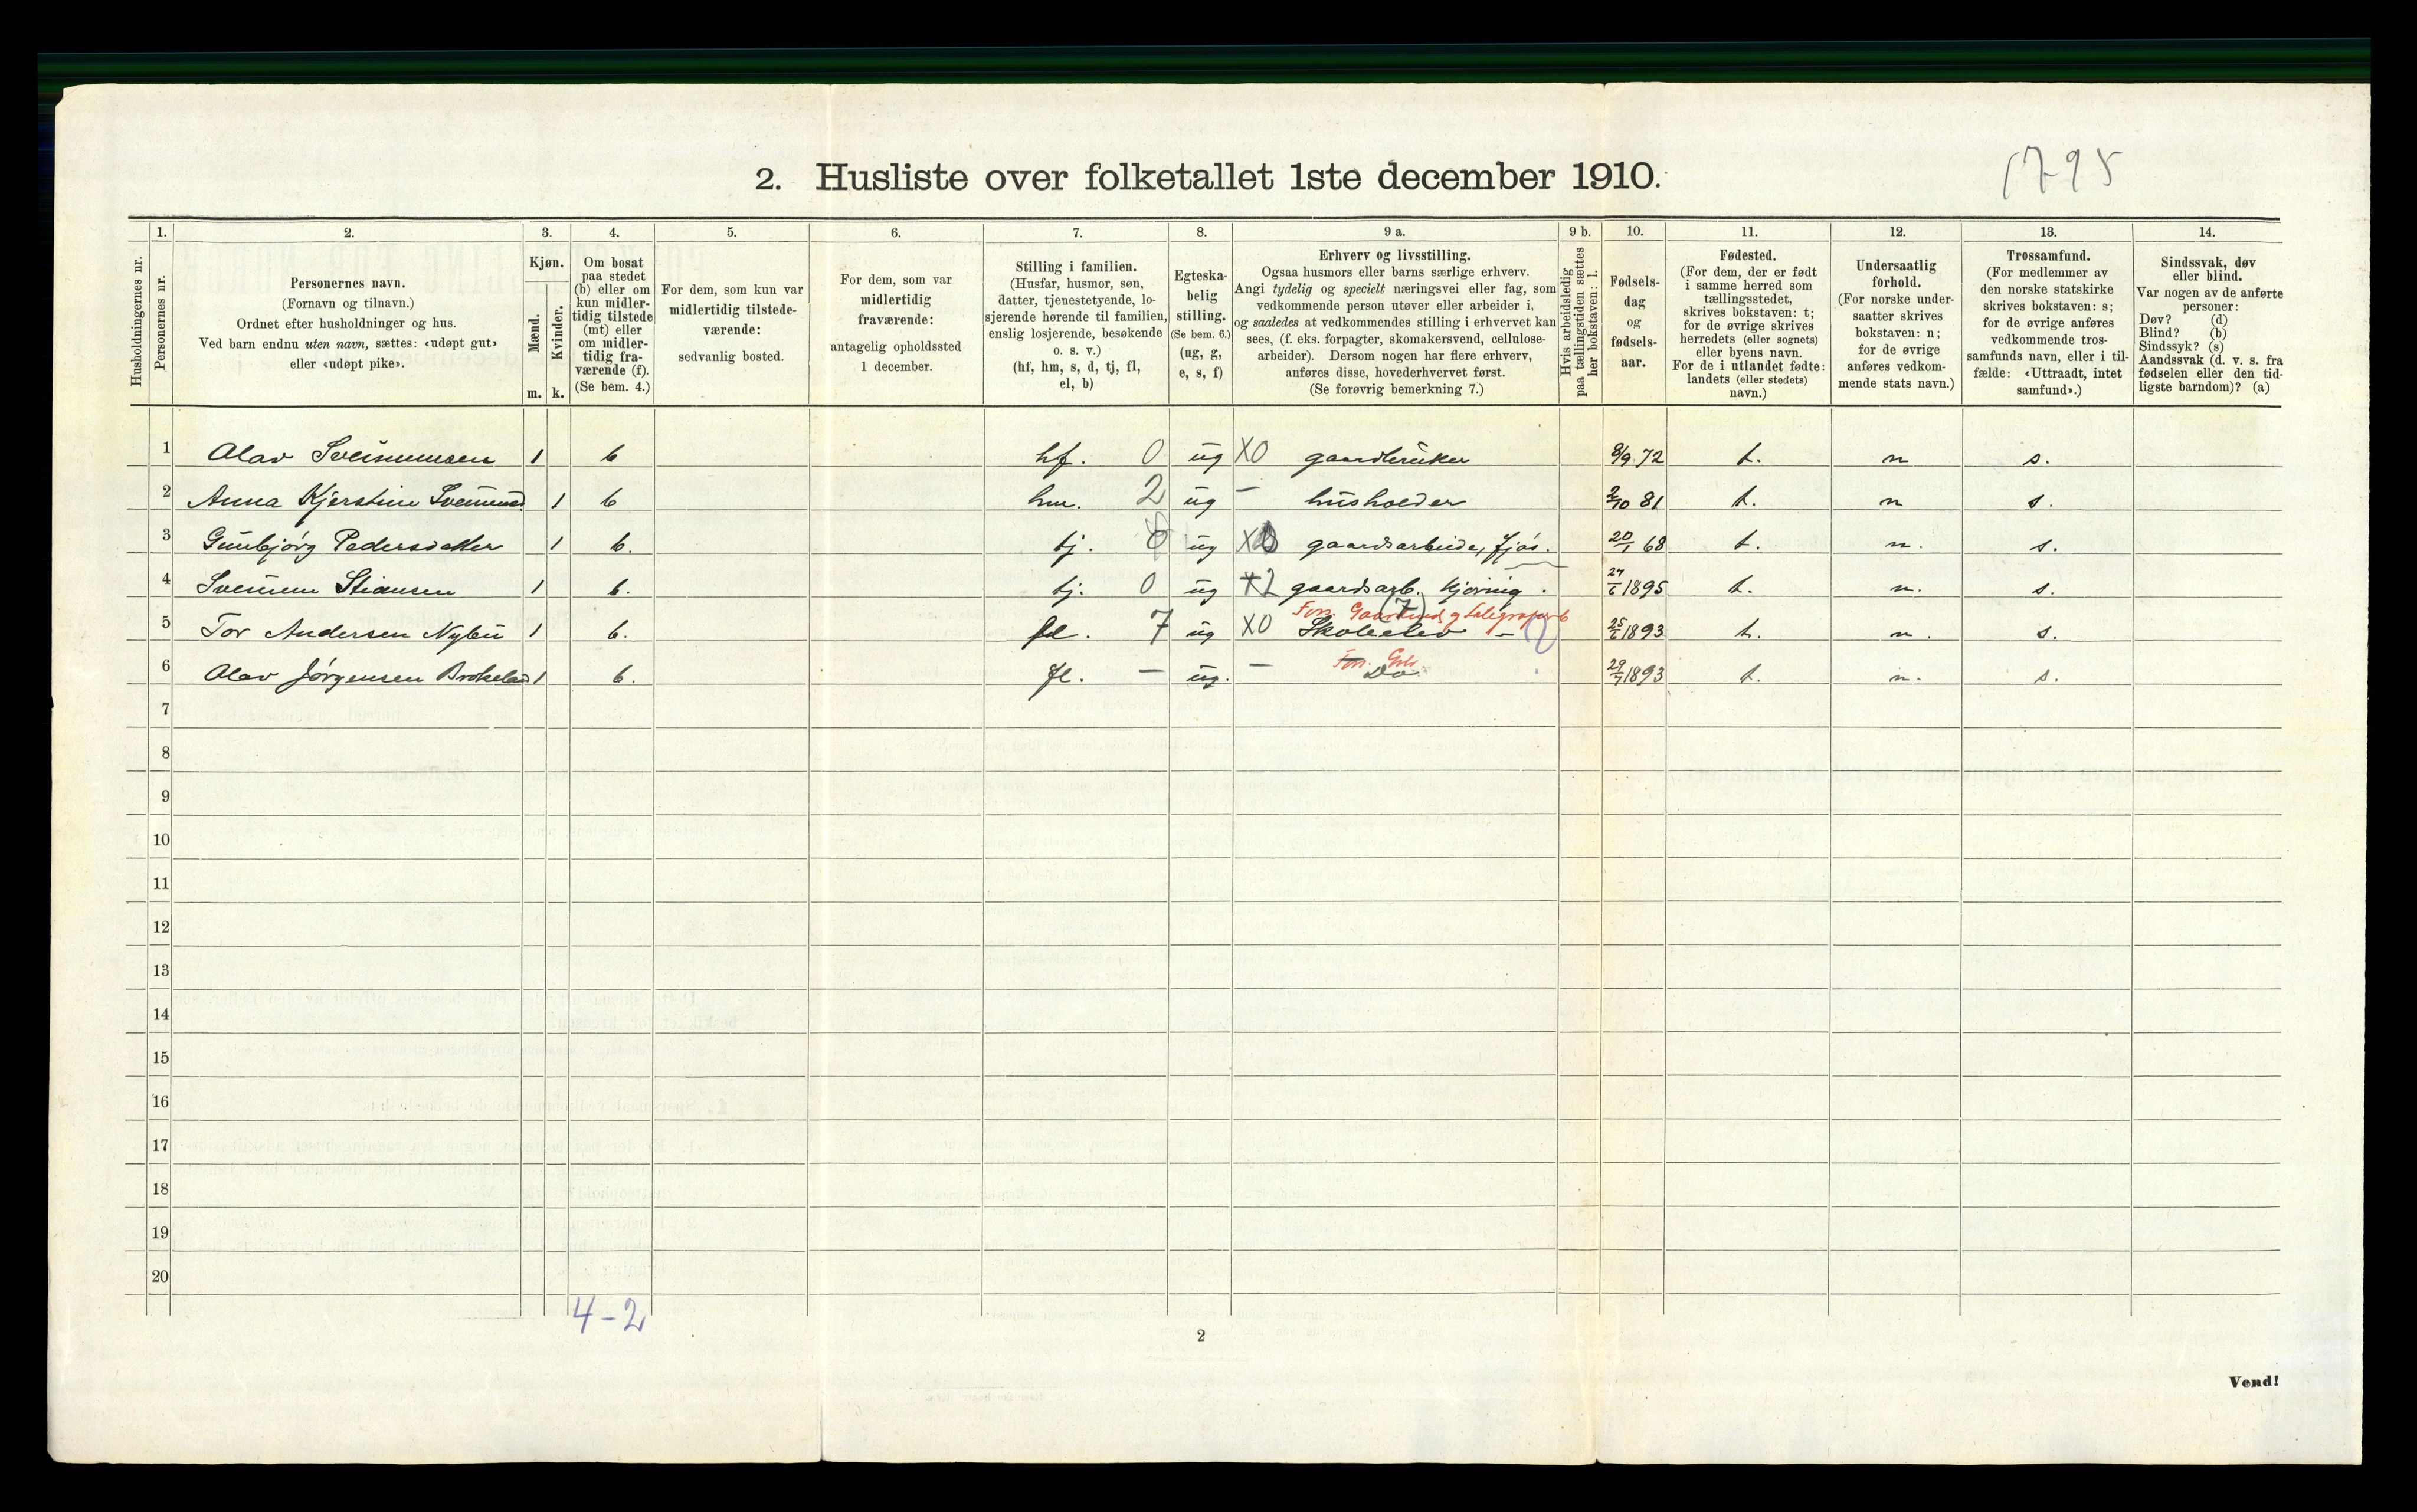 1795
2. Husliste over folketallet 1ste december 1910.
Husholdningernes nr.
1. Personernes nr.
2. Personernes navn. (Fornavn og tilnavn.) Ordnet efter husholdninger og hus. Ved barn endnu uten navn, sættes: «udøpt gut» eller «udøpt pike».
3. Kjøn. Mænd. m. Kvinder. k.
4. Om bosat paa stedet (b) eller om kun midlertidig tilstede (mt) eller om midlertidig fraværende (f). (Se bem. 4.)
5. For dem, som kun var midlertidig tilstedeværende: sedvanlig bosted.
6. For dem, som var midlertidig fraværende: antagelig opholdssted 1 december.
7. Stilling i familien. (Husfar, husmor, søn, datter, tjenestetyende, losjerende hørende til familien, enslig losjerende, besøkende o. s. v.) (hf, hm, s, d, tj, fl, el, b)
8. Egteskabelig stilling. (Se bem. 6.) (ug, g, e, s, f)
9 a. Erhverv og livsstilling. Ogsaa husmors eller barns særlige erhverv. Angi tydelig og specielt næringsvei eller fag, som vedkommende person utøver eller arbeider i, og saaledes at vedkommendes stilling i erhvervet kan sees, (f. eks. forpagter, skomakersvend, cellulosearbeider). Dersom nogen har flere erhverv, anføres disse, hovederhvervet først. (Se forøvrig bemerkning 7.)
9 b. Hvis arbeidsledig paa tællingstiden sættes her bokstaven: l.
10. Fødselsdag og fødselsaar.
11. Fødested. (For dem, der er født i samme herred som tællingsstedet, skrives bokstaven: t; for de øvrige skrives herredets (eller sognets) eller byens navn. For de i utlandet fødte: landets (eller stedets) navn.)
12. Undersaatlig forhold. (For norske undersaatter skrives bokstaven: n; for de øvrige anføres vedkommende stats navn.)
13. Trossamfund. (For medlemmer av den norske statskirke skrives bokstaven: s; for de øvrige anføres vedkommende trossamfunds navn, eller i tilfælde: «Uttraadt, intet samfund».)
14. Sindssvak, døv eller blind. Var nogen av de anførte personer: Døv? (d) Blind? (b) Sindssyk? (s) Aandssvak (d. v. s. fra fødselen eller den tidligste barndom)? (a)
1 Olav Sveinumsen 1 b hf. 0 ug X0 gaardbruker 8/9 72 t. n s.
2 Anna Kjerstine 1 b hm. 2 ug - husholder 2/10 81 t. n s.
3 Gunbjørg Pedersdatter 1 b. tj. 0 ug X gaardsarbeide, fjøs. 20/1 68 t. n. s.
4 Stiansen 1 b. tj. 0 ug X2 gaardsarb. kjøring. 1895 t. n. s.
Fors. (7)
5 Tor Andersen Nybu 1 b. fl. 7 ug X0 Skoleelev - 25/6 1893 t. n. s.
Fors. Gbr
6 Olav Jørgensen 1 b. fl. - ug. - Do 1893 t. n. s.
7
8
9
10
11
12
13
14
15
16
17
18
19
20
4-2
2
Vend!